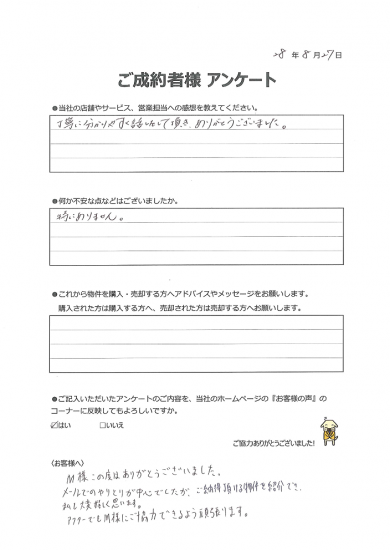 28年8月27日
ご成約者様 アンケート
●当社の店舗やサービス、営業担当への感想を教えてください。
丁寧に分かりやすく話をして頂き、ありがとうございました。
●何か不安な点などはございましたか。
特にありません。
●これから物件を購入・売却する方へアドバイスやメッセージをお願いします。
購入された方は購入する方へ、売却された方は売却する方へお願いします。
●ご記入いただいたアンケートのご内容を、当社のホームページの『お客様の声』の
コーナーに反映してもよろしいですか。
☑はい □いいえ
ご協力ありがとうございました!
《お客様へ》
M様この度はありがとうございました。
メールでのやりとりが中心でしたが、ご納得頂ける物件を紹介でき、
私も大変嬉しく思います。
アフターでもM様にご協力できるよう頑張ります。